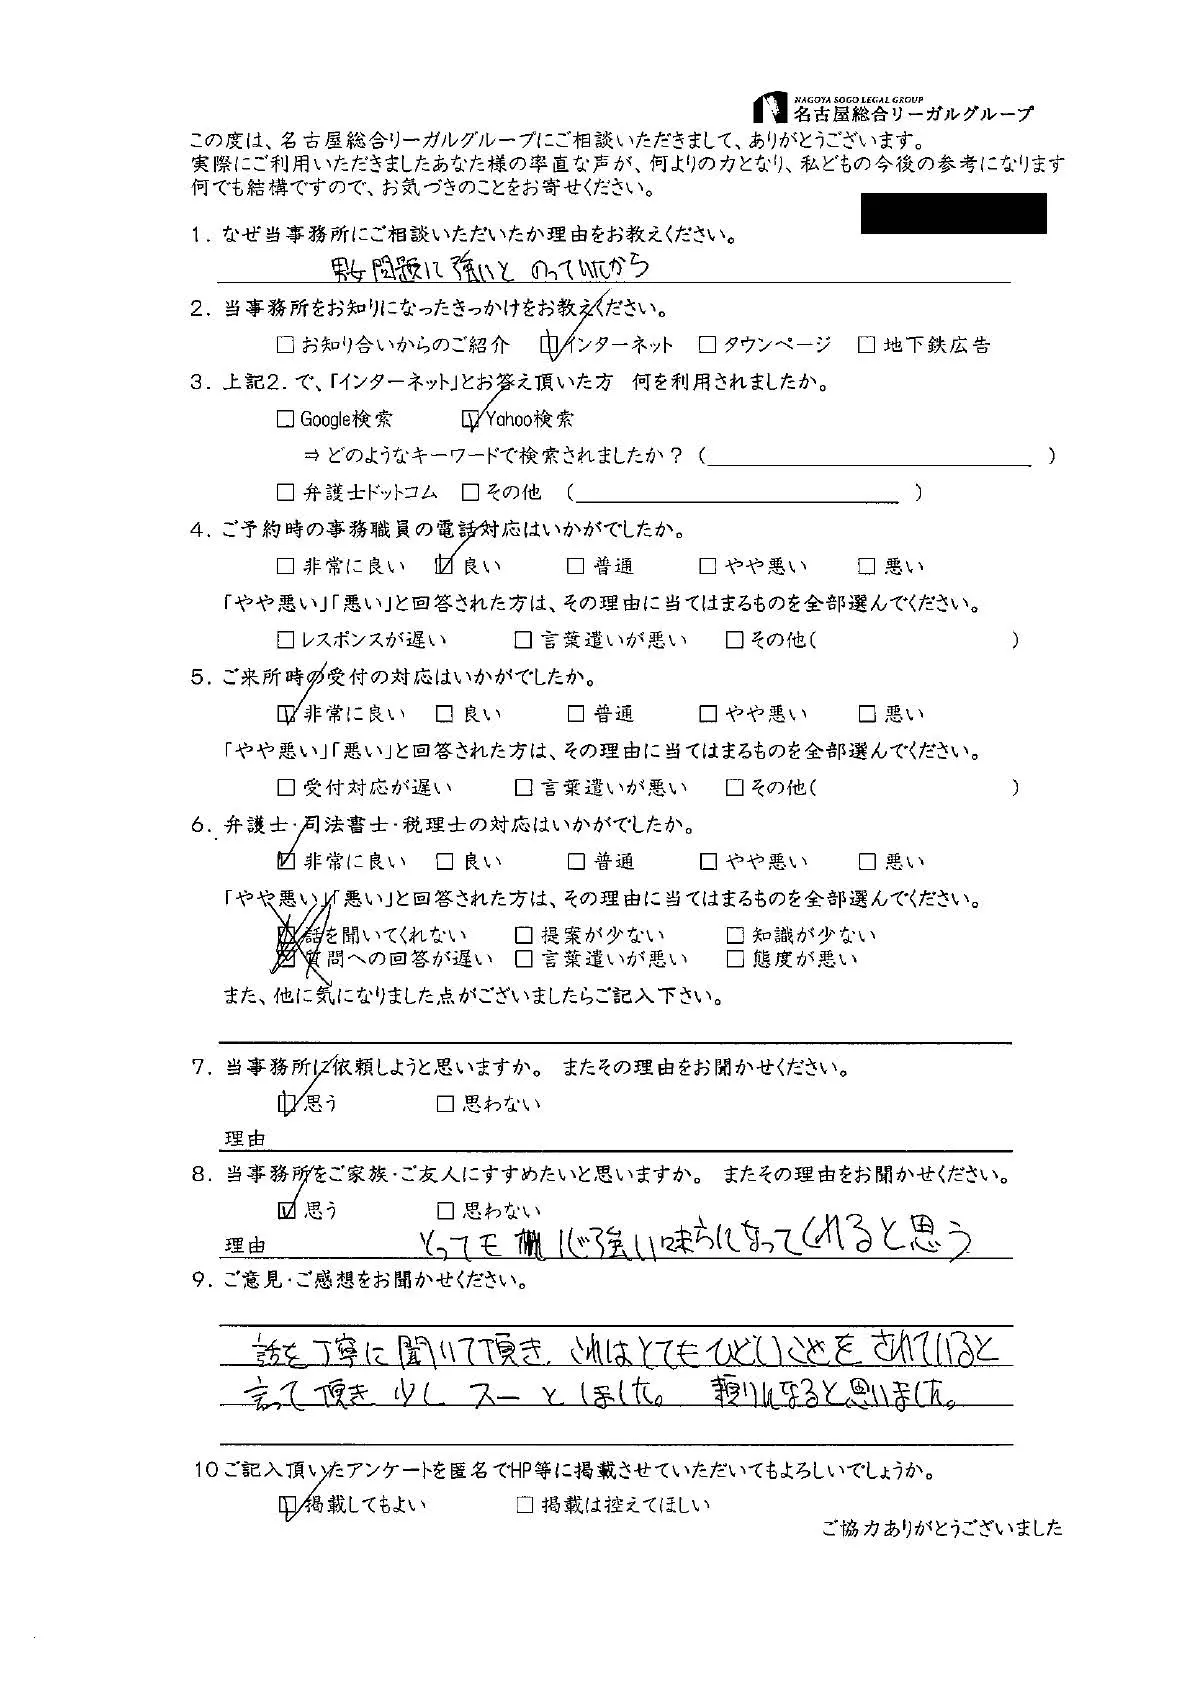 NAGOYA SOGO LEGAL GROUP
名古屋総合リーガルグループ
この度は、名古屋総合リーガルグループにご相談いただきまして、ありがとうございます。
実際にご利用いただきましたあなた様の率直な声が、何よりの力となり、私どもの今後の参考になります
何でも結構ですので、お気づきのことをお寄せください。
1. なぜ当事務所にご相談いただいたか理由をお教えください。
男女問題に強いと のっていたから
2. 当事務所をお知りになったきっかけをお教えください。
□ お知り合いからのご紹介 ☑ インターネット □ タウンページ □ 地下鉄広告
3. 上記2. で、「インターネット」とお答え頂いた方 何を利用されましたか。
□ Google検索 ☑ Yahoo検索
⇒ どのようなキーワードで検索されましたか? ( )
□ 弁護士ドットコム □ その他 ( )
4. ご予約時の事務職員の電話対応はいかがでしたか。
□ 非常に良い ☑ 良い □ 普通 □ やや悪い □ 悪い
「やや悪い」「悪い」と回答された方は、その理由に当てはまるものを全部選んでください。
□ レスポンスが遅い □ 言葉遣いが悪い □ その他( )
5. ご来所時の受付の対応はいかがでしたか。
☑ 非常に良い □ 良い □ 普通 □ やや悪い □ 悪い
「やや悪い」「悪い」と回答された方は、その理由に当てはまるものを全部選んでください。
□ 受付対応が遅い □ 言葉遣いが悪い □ その他( )
6. 弁護士・司法書士・税理士の対応はいかがでしたか。
☑ 非常に良い □ 良い □ 普通 □ やや悪い □ 悪い
「やや悪い」「悪い」と回答された方は、その理由に当てはまるものを全部選んでください。
□ 話を聞いてくれない □ 提案が少ない □ 知識が少ない
□ 質問への回答が遅い □ 言葉遣いが悪い □ 態度が悪い
また、他に気になりました点がございましたらご記入下さい。
7. 当事務所に依頼しようと思いますか。 またその理由をお聞かせください。
☑ 思う □ 思わない
理由
8. 当事務所をご家族・ご友人にすすめたいと思いますか。 またその理由をお聞かせください。
☑ 思う □ 思わない
理由 とっても 心強い味方になってくれると思う
9. ご意見・ご感想をお聞かせください。
話を丁寧に聞いて頂き、これはとてもひどいことをされていると
言って頂き 少し スーと しました。 頼りになると思いました。
10 ご記入頂いたアンケートを匿名でHP等に掲載させていただいてもよろしいでしょうか。
☑ 掲載してもよい □ 掲載は控えてほしい
ご協力ありがとうございました